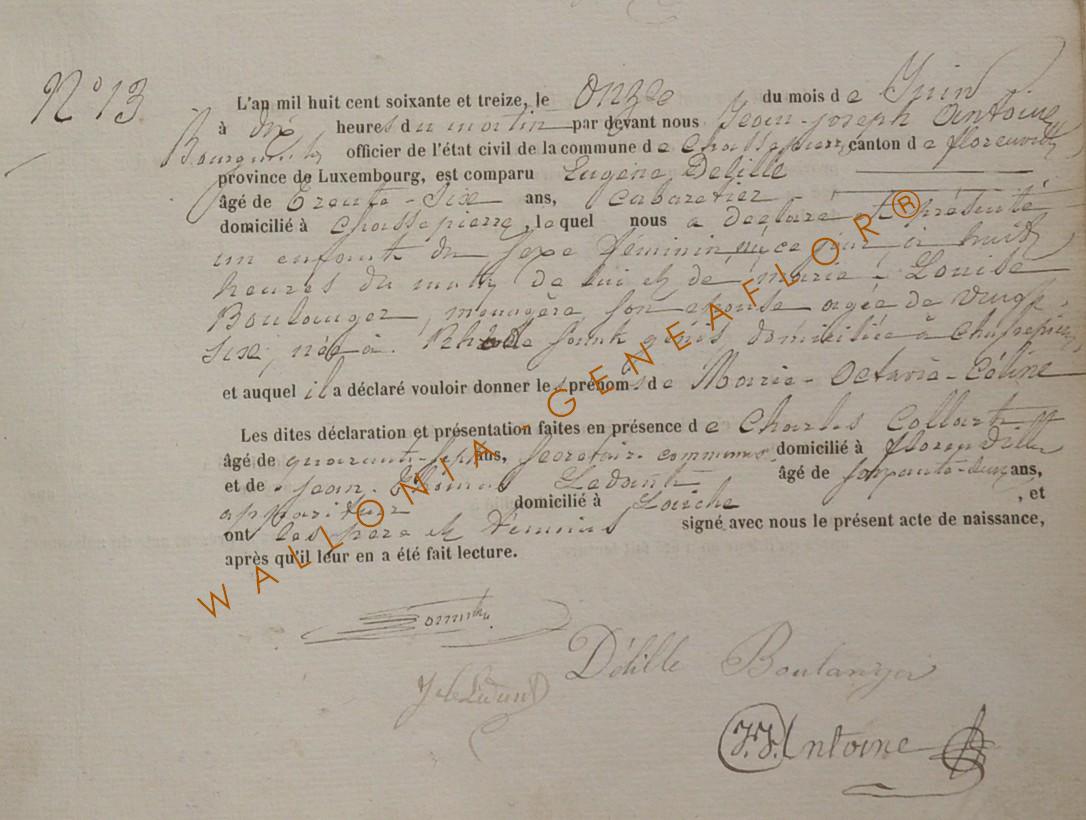 N° 13
L'an mil huit cent soixante et treize, le onze du mois de Juin
à dix heures du matin par devant nous Jean-Joseph Antoine
Bourgmestre officier de l'état civil de la commune de Chassepierre, canton de florenville
province de Luxembourg, est comparu Eugène Delille
âgé de Trente-Six ans, Cabaretier
domicilié à Chassepierre, lequel nous a déclaré et présenté
un enfant du sexe féminin, né ce jour à huit
heures du matin de lui et de marie-Louise
Boulanger, menagère, son epouse agée de vingt
six, née à domiciliée à Chassepierre,
et auquel il a déclaré vouloir donner les prénoms de Marie-Octavie-Céline
Les dites déclaration et présentation faites en présence de Charles Collart
âgé de quarante-sept ans, Secretaire communal domicilié à florenville
et de Jean Ledant âgé de soixante-deux ans,
appariteur domicilié à Laiche, et
ont les père et témoins signé avec nous le présent acte de naissance,
après qu'il leur en a été fait lecture.
Délille Boulanger
J.J. Antoine
WALLONIA-GENEAFLOR®